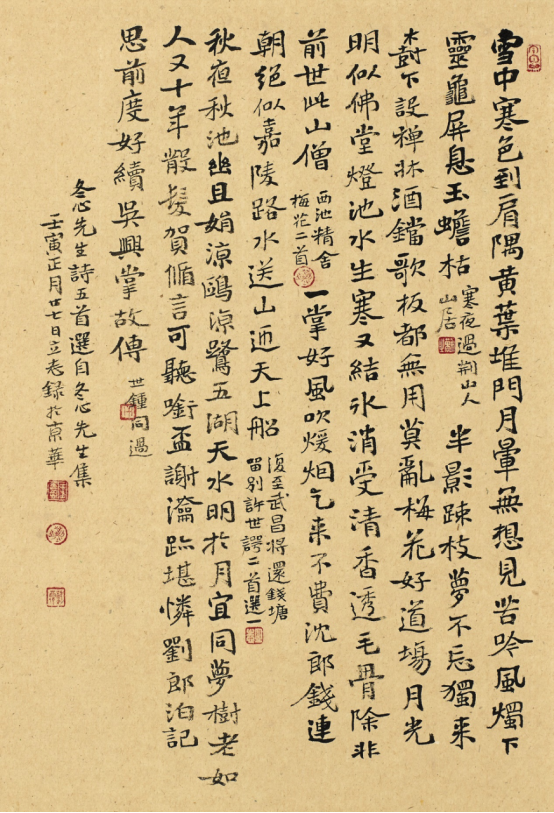 雪中寒色到肩隅黃葉堆門月暈無想見苦吟風燭下
靈龜屏息玉蟾枯
寒夜過荆山人
山居
半影疎枝夢不忘獨来
樹下設禅牀酒鐺歌板都無用莫亂梅花好道場月光
明似佛堂燈池水生寒又結氷消受清香透毛骨除非
前世此山僧
西池精舍
梅花二首
一掌好風吹煖烟乞来不費沈郎錢連
朝絕似嘉陵路水送山迎天上船
復至武昌將還錢塘
留别許世諤二首選一
秋亱秋池幽且娟涼鷗涼鷺五湖天水明於月宜同夢樹老如
人又十年散髮賀循言可聽銜盃謝瀹跡堪憐劉郎泊記
思前度好續吳興掌故傳
世鍾同過
冬心先生詩五首選自冬心先生集
壬寅正月廿七日立志錄於京華